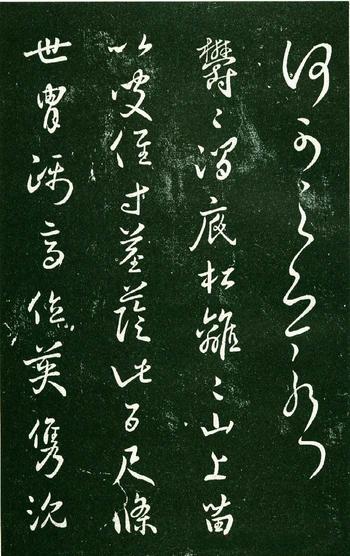 何可
鬱〻澗底松離〻山上苗
以彼徑寸莖蔭此百尺條
世胄躡高位英儁沈